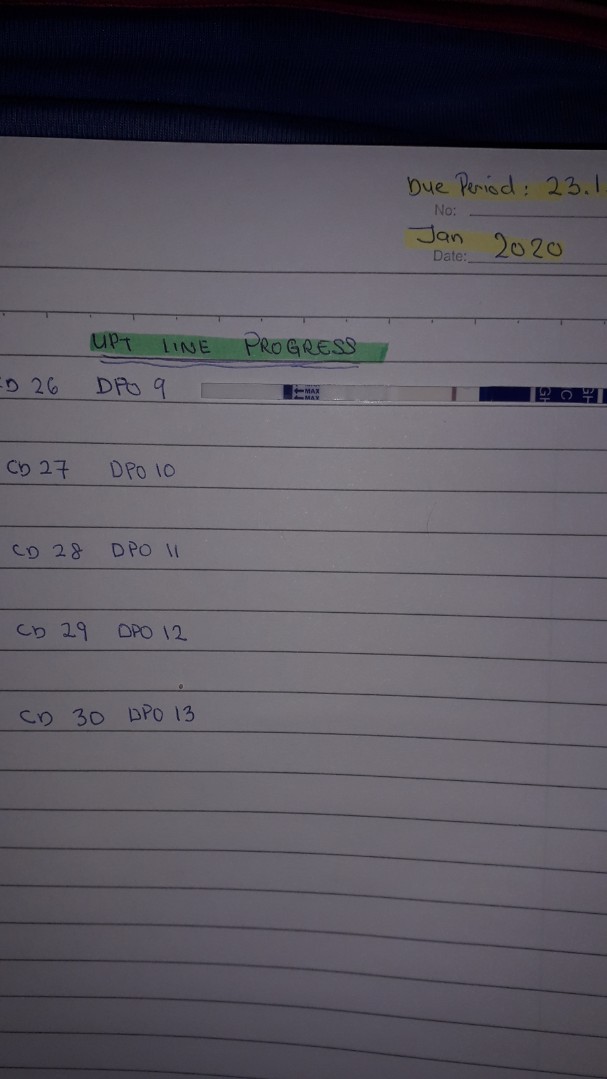 Due Period: 23.1
No:
Jan 2020
Date:
UPT LINE PROGRESS
CD 26 DPO 9
MAX
MAX
C
CD 27 DPO 10
CD 28 DPO 11
CD 29 DPO 12
CD 30 DPO 13